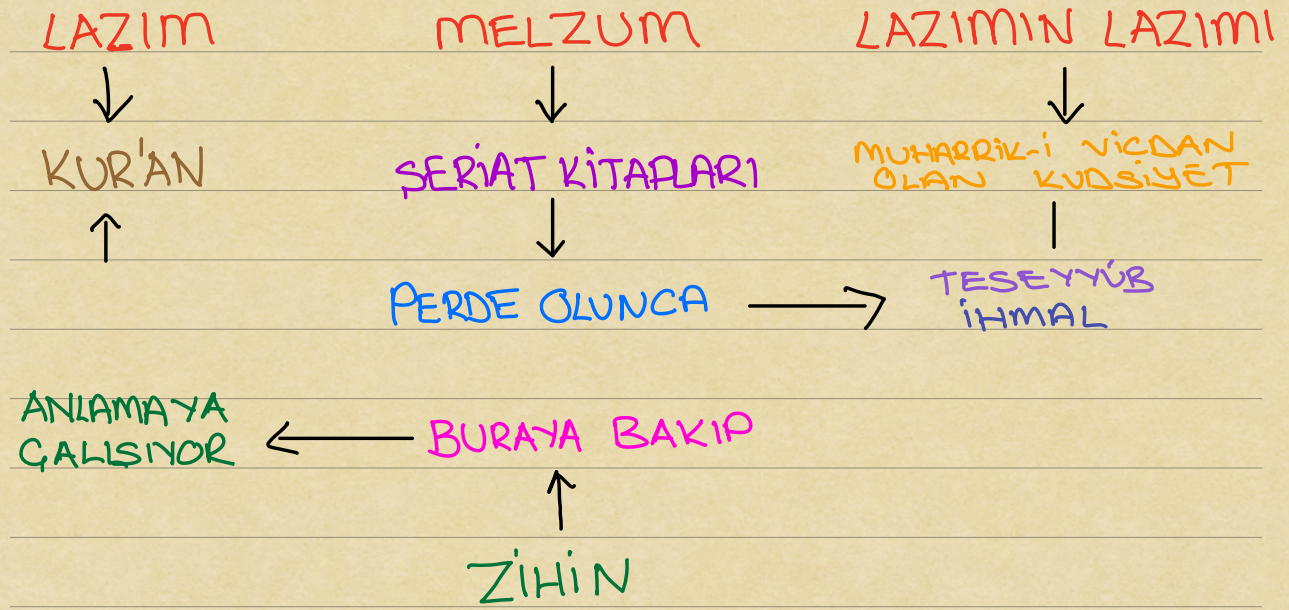 LAZIM
MELZUM
LAZIMIN LAZIMI
KUR'AN
ŞERİAT KİTAPLARI
MUHARRİK-İ VİCDAN
OLAN KUDSİYET
PERDE OLUNCA
TESEYYÜB
İHMAL
ANLAMAYA
ÇALISIYOR
BURAYA BAKIP
ZİHİN